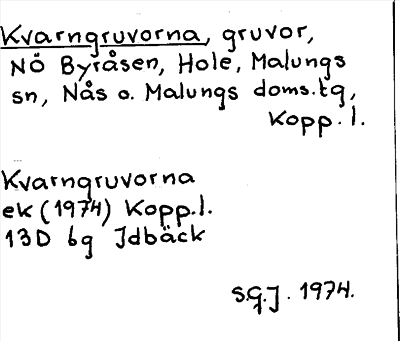 Kvarngruvorna, gruvor,
NÖ Byråsen, Hole, Malungs
sn, Nås o. Malungs doms.tg,
Kopp. l.
Kvarngruvorna
ek (1974) Kopp.l.
13D bg Idbäck
S.G.J. 1974.